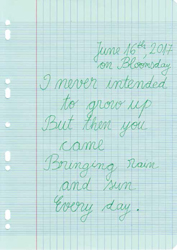 June 16th, 2017
on Bloomsday
I never intended
to grow up
But then you
came
Bringing rain
and sun
Every day.